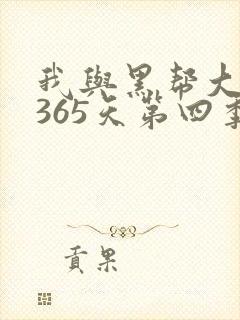 我與黑帮大
365天第四季
貢果